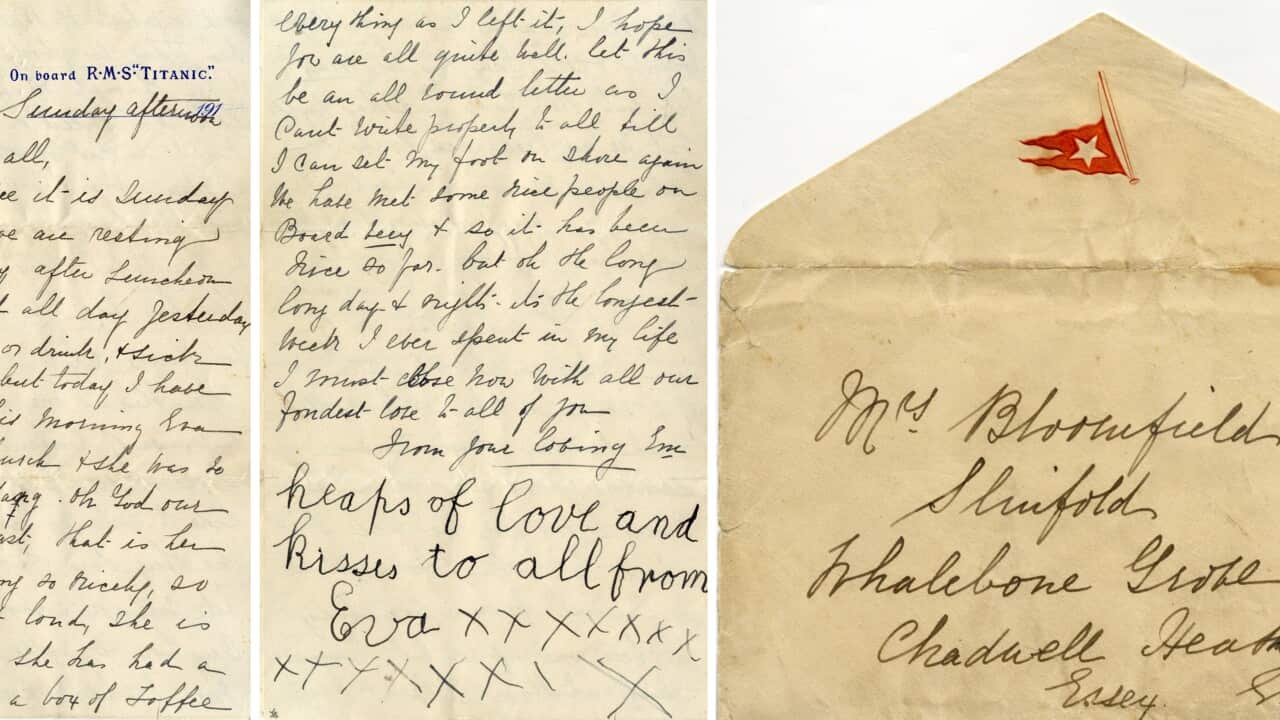 On board R·M·S "TITANIC."
Sunday afternoon
191
all,
ee it is Sunday
we are resting
y after Luncheon
t all day Yesterday
or drink, & sick
but today I have
is morning Eva
urch & she was so
oh God our
ast, that is her
ng so nicely, so
loud, She is
she has had a
a box of Toffee
everything as I left it, I hope
you are all quite well. let this
be an all round letter as I
Cant write properly to all till
I can set my foot on shore again
We have met some nice people on
Board & so it has been
nice so far. but oh the long
long day & nights. its the longest
Week I ever spent in my life
I must close now with all our
fondest love to all of you
From your loving Em
heaps of love and
kisses to all from
Eva x x x x x x x
x x x x x x x \ x
Mrs Bloomfield
Slinfold
Whalebone Grove
Chadwell Heath
Essex E